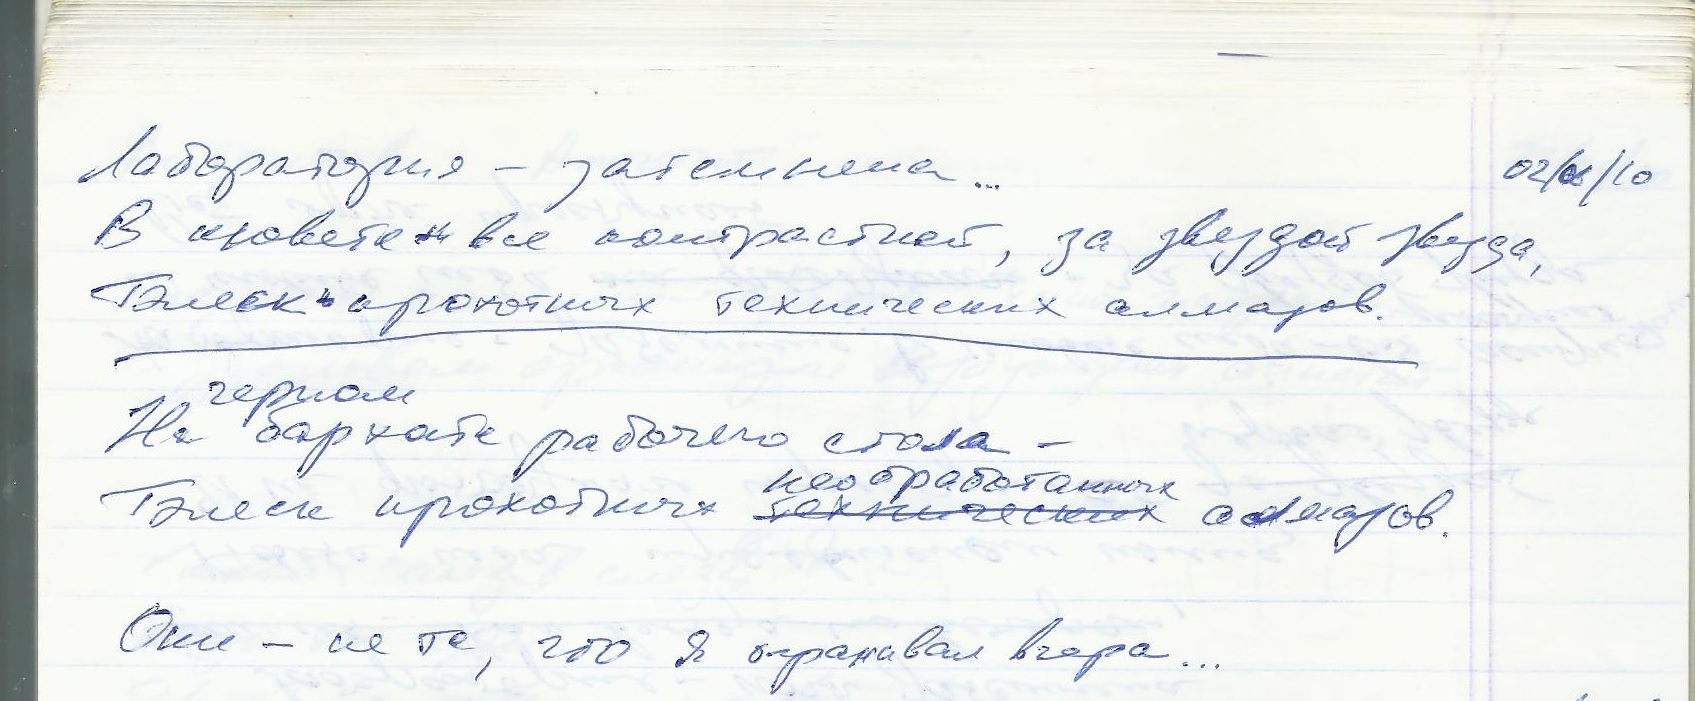 Лаборатория – затемнена... 02/06/10
В кювете все контрастней, за звездой звезда,
Блеск крохотных технических алмазов.
черном
На бархате рабочего стола –
необработанных
Блеск крохотных технических алмазов.
Они – не те, что я вчера...